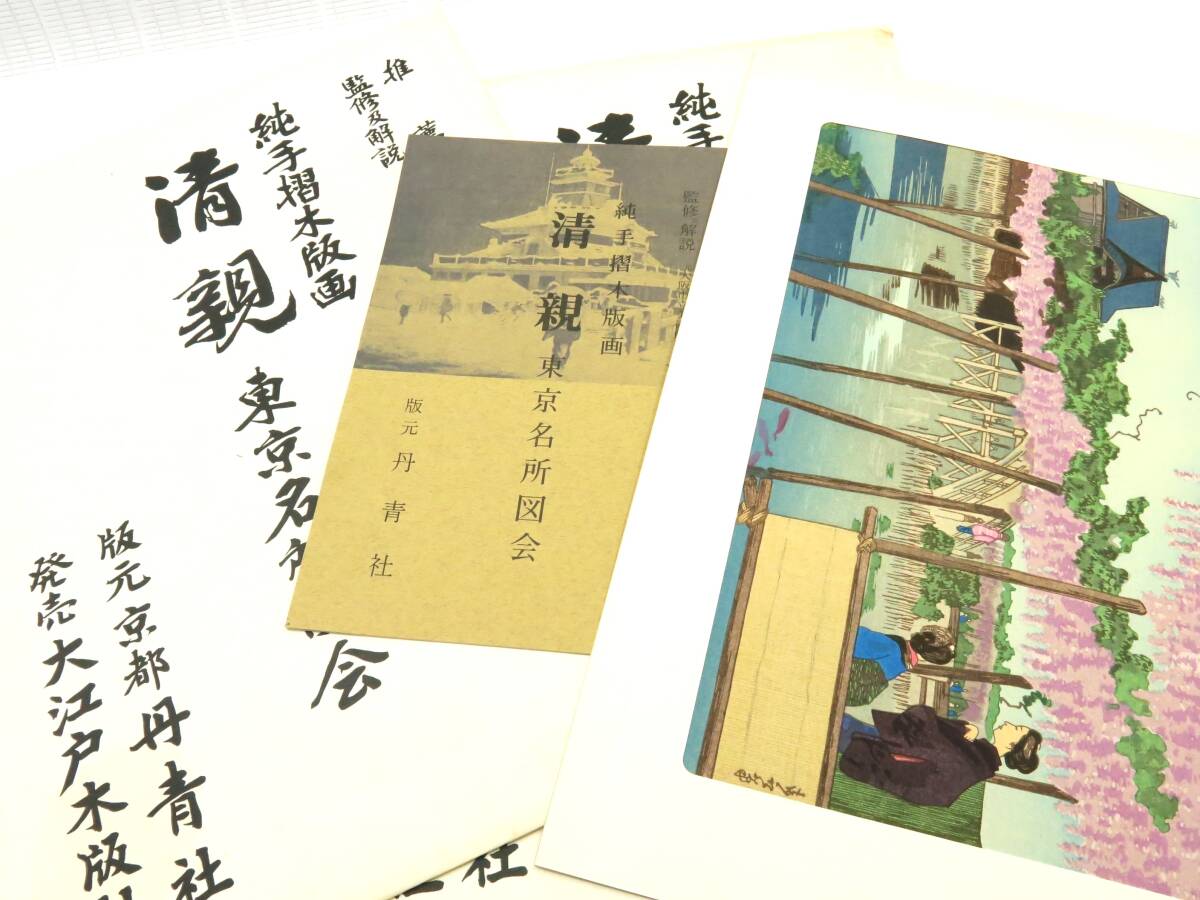 推薦
監修及解説
純手摺木版画
清親
東京名所図会
版元京都丹青社
発売大江戸木版社
監修・解説
純手摺木版画
清親
東京名所図会
版元
丹青社
純手
清
社